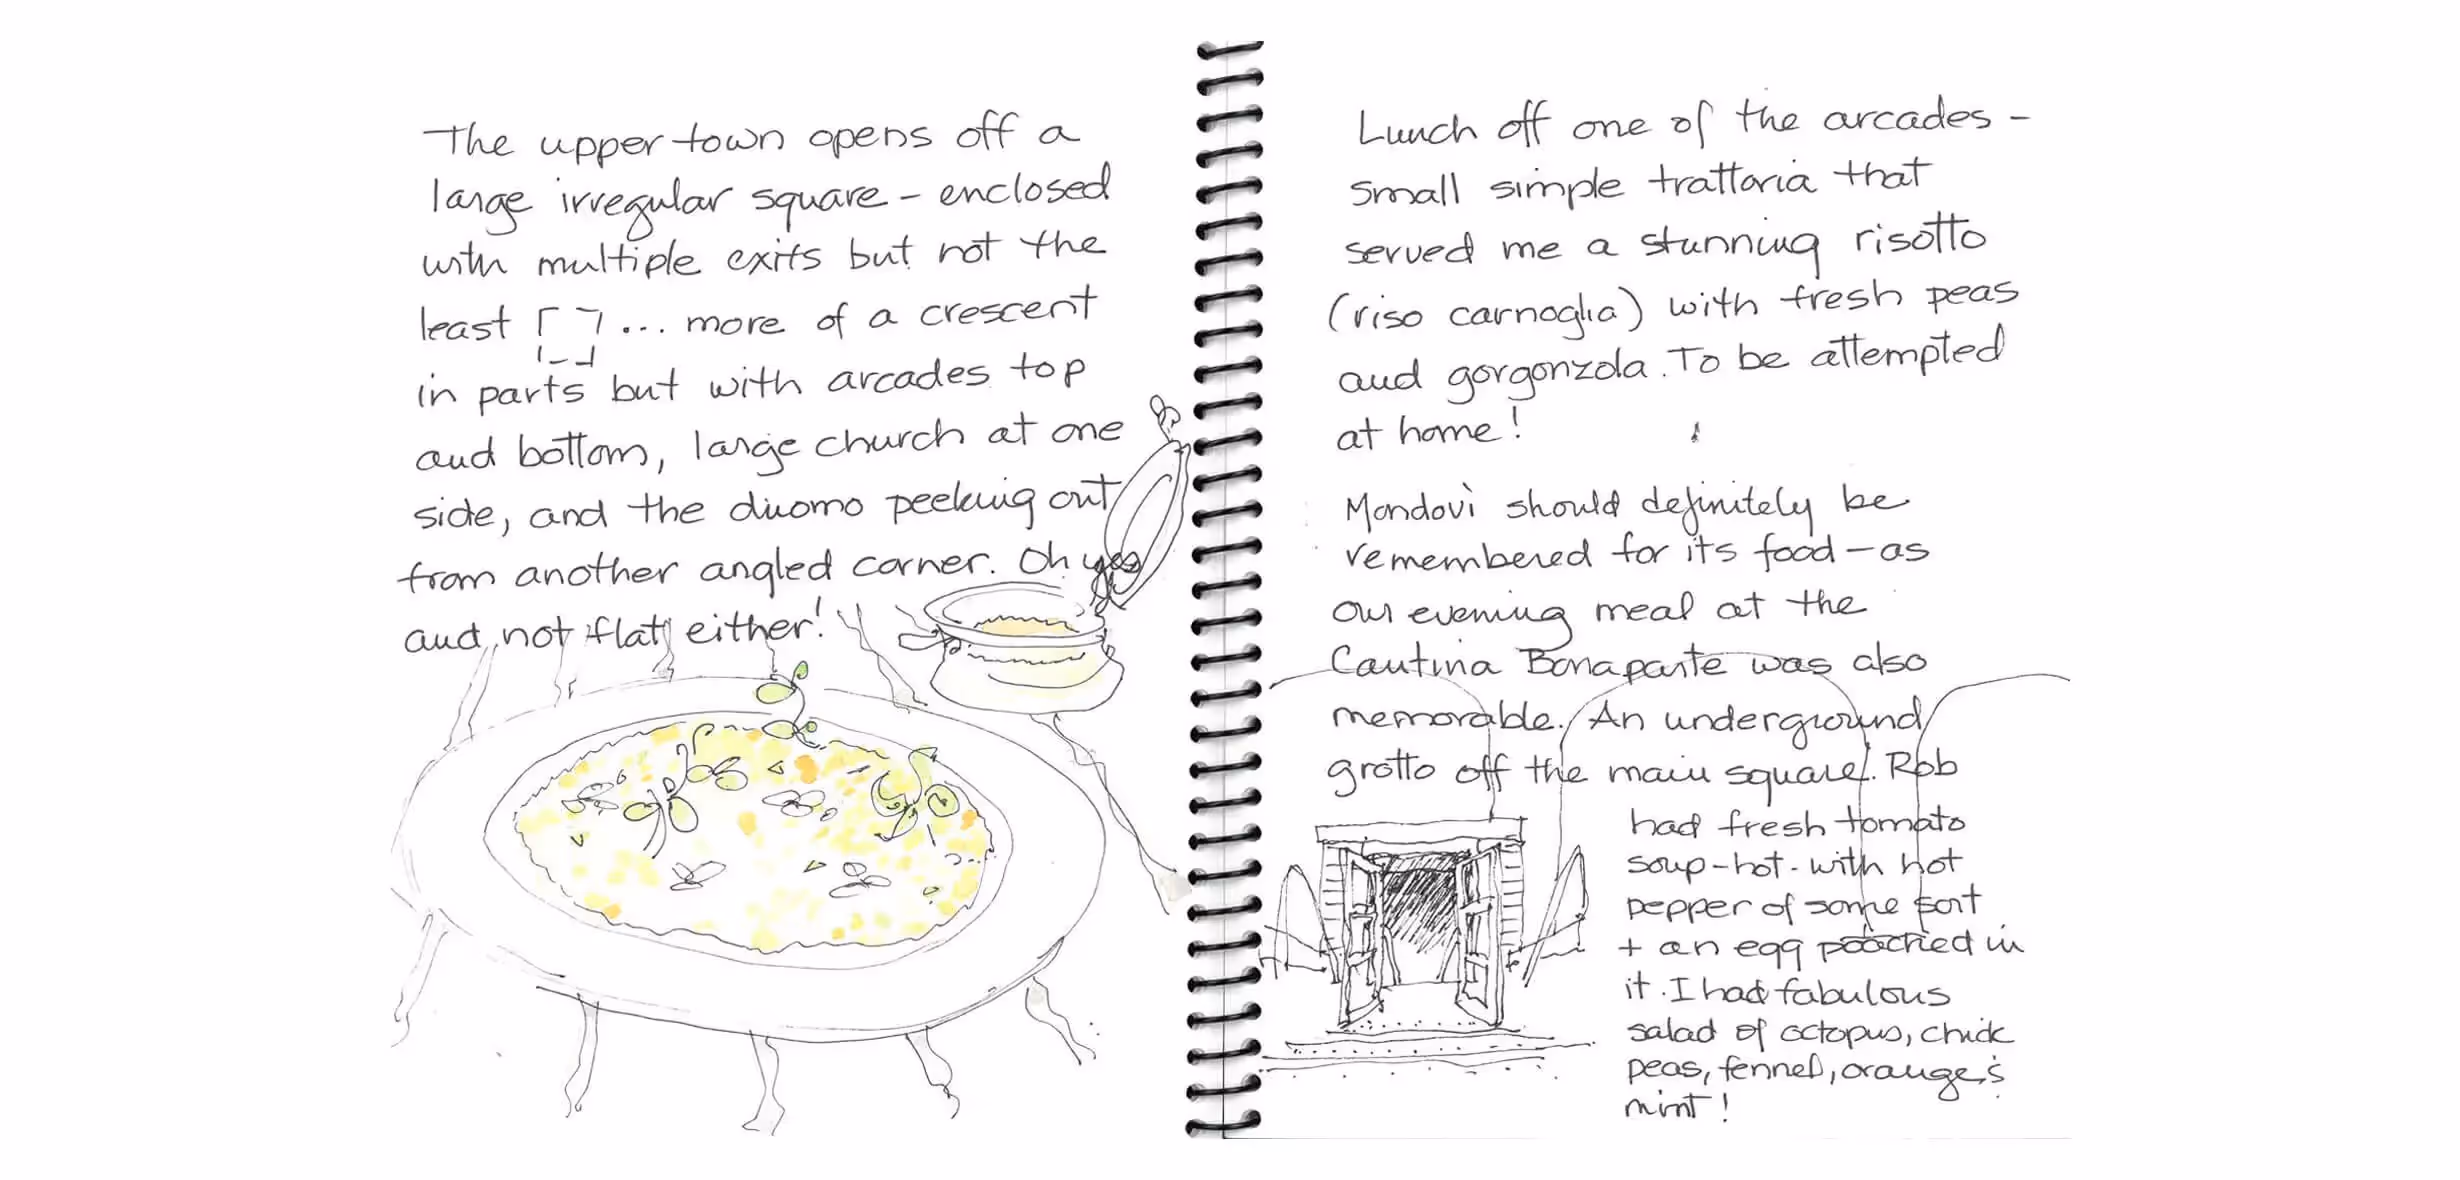 The upper town opens off a
large irregular square - enclosed
with multiple exits but not the
least ... more of a crescent
in parts but with arcades top
and bottom, large church at one
side, and the duomo peeking out
from another angled corner. Oh yes
and not flat either!
Lunch off one of the arcades -
small simple trattoria that
served me a stunning risotto
(riso carnoglia) with fresh peas
and gorgonzola. To be attempted
at home!
Mondovì should definitely be
remembered for its food - as
our evening meal at the
Cantina Bonaparte was also
memorable. An underground
grotto off the main square. Rob
had fresh tomato
soup - hot - with hot
pepper of some sort
+ an egg poached in
it. I had fabulous
salad of octopus, chick
peas, fennel, orange &
mint!